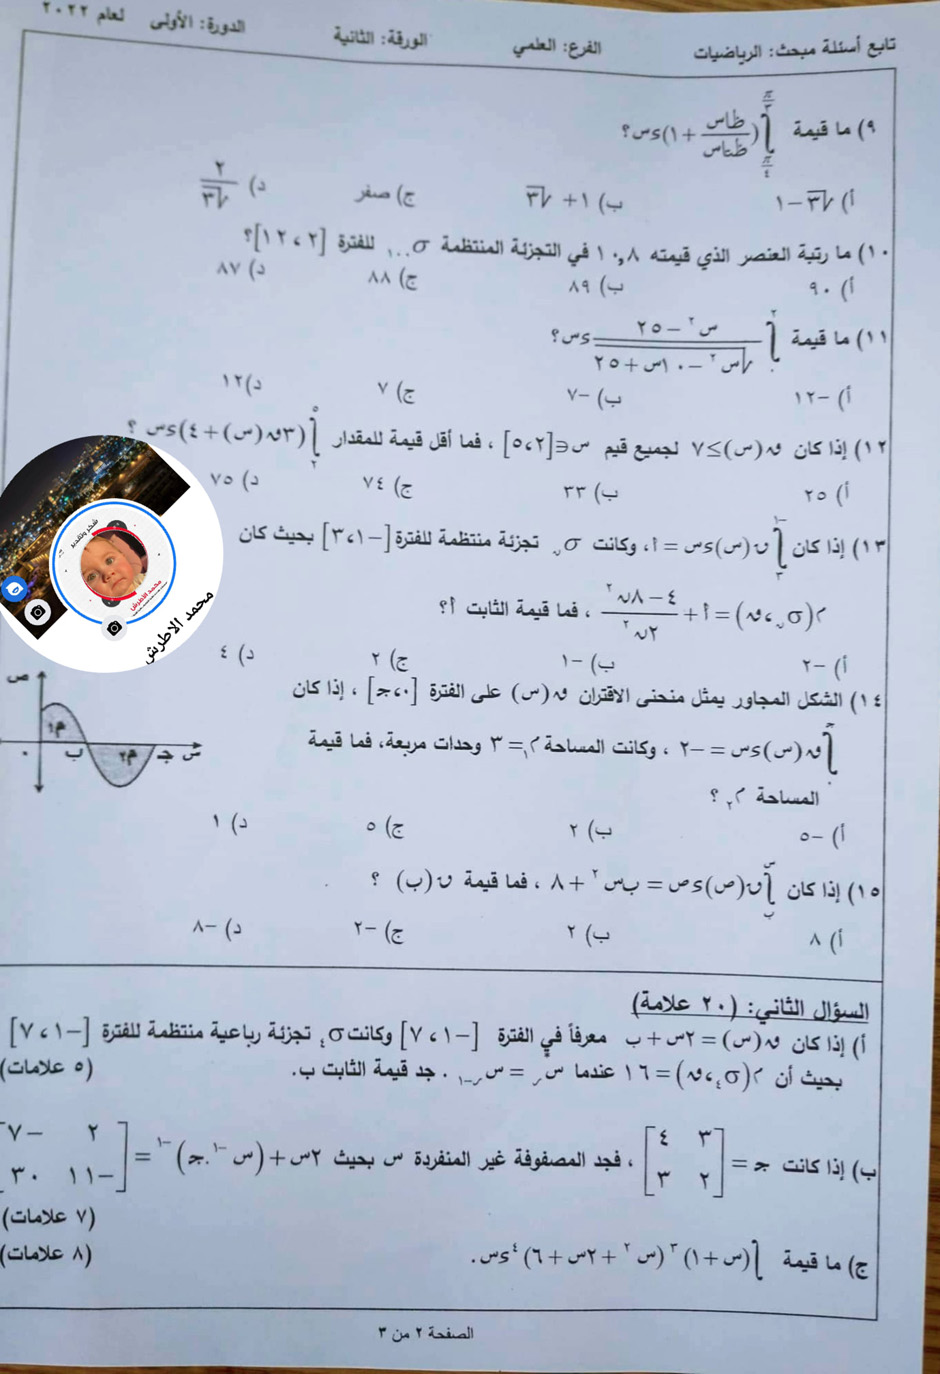 تابع أسئلة مبحث: الرياضيات الفرع: العلمي الورقة: الثانية الدورة: الأولى لعام ٢٠٢٢
٩) ما قيمة ∫ من π/٤ إلى π/٣ (ظاس/ظتاس + ١) ءس؟
أ) √٣ − ١ ب) ١ + √٣ ج) صفر د) ٢/√٣
١٠) ما رتبة العنصر الذي قيمته ١٠,٨ في التجزئة المنتظمة σ١٠٠ للفترة [٢ ، ١٢]؟
أ) ٩٠ ب) ٨٩ ج) ٨٨ د) ٨٧
١١) ما قيمة ∫ من ٠ إلى ٢ (س٢ − ٢٥)/√(س٢ − ١٠س + ٢٥) ءس؟
أ) −١٢ ب) −٧ ج) ٧ د) ١٢
١٢) إذا كان ق(س) ≥ ٧ لجميع قيم س ∈ [٢ ، ٥] ، فما أقل قيمة للمقدار ∫ من ٢ إلى ٥ (٣ق(س) + ٤) ءس ؟
أ) ٢٥ ب) ٣٣ ج) ٧٤ د) ٧٥
١٣) إذا كان ∫ من ٣ إلى −١ ق(س) ءس = أ ، وكانت σن تجزئة منتظمة للفترة [−١ ، ٣] بحيث كان
م(σن ، ق) = أ + (٤ − ٨ن٢)/٢ن٢ ، فما قيمة الثابت أ؟
أ) −٢ ب) −١ ج) ٢ د) ٤
١٤) الشكل المجاور يمثل منحنى الاقتران ق(س) على الفترة [٠ ، جـ] ، إذا كان
∫ من ٠ إلى جـ ق(س) ءس = −٢ ، وكانت المساحة م١ = ٣ وحدات مربعة، فما قيمة
المساحة م٢ ؟
أ) −٥ ب) ٢ ج) ٥ د) ١
ص
م١
٠ ب م٢ جـ س
١٥) إذا كان ∫ من ب إلى س ق(ص) ءص = ب س٢ + ٨ ، فما قيمة ق(ب) ؟
أ) ٨ ب) ٢ ج) −٢ د) −٨
السؤال الثاني: (٢٠ علامة)
أ) إذا كان ق(س) = ٢س + ب معرفاً في الفترة [−١ ، ٧] وكانت σ٤ تجزئة رباعية منتظمة للفترة [−١ ، ٧]
بحيث أن م(σ٤ ، ق) = ١٦ عندما س*ر = سر−١ . جد قيمة الثابت ب. (٥ علامات)
ب) إذا كانت جـ = [٣ ٤ ; ٢ ٣] ، فجد المصفوفة غير المنفردة س بحيث ٢س + (س−١ . جـ)−١ = [٢ −٧ ; −١١ ٣٠]
(٧ علامات)
ج) ما قيمة ∫ (س + ١)٣ (س٢ + ٢س + ٦)٤ ءس . (٨ علامات)
الصفحة ٢ من ٣
شكر وتقدير
محمد الاطرش
محمد الاطرش